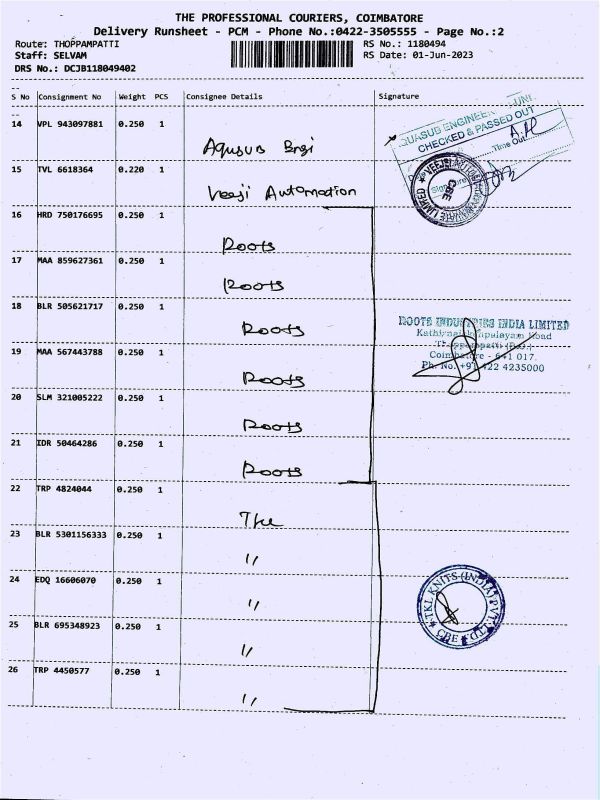 THE PROFESSIONAL COURIERS, COIMBATORE
Delivery Runsheet - PCM - Phone No.:0422-3505555 - Page No.:2
Route: THOPPAMPATTI RS No.: 1180494
Staff: SELVAM RS Date: 01-Jun-2023
DRS No.: DCJB118049402
S No Consignment No Weight PCS Consignee Details Signature
14 VPL 943097881 0.250 1
CHECKED & PASSED OUT
Time Out
15 TVL 6618364 0.220 1
Veeji Automation
16 HRD 750176695 0.250 1
Roots
17 MAA 859627361 0.250 1
Roots
18 BLR 505621717 0.250 1
Roots
ROOTS INDUSTRIES INDIA LIMITED
19 MAA 567443788 0.250 1
Coimbatore - 641 017.
Ph. No. +91 422 4235000
Roots
20 SLM 321005222 0.250 1
Roots
21 IDR 50464286 0.250 1
Roots
22 TRP 4824044 0.250 1
23 BLR 5301156333 0.250 1
"
24 EDQ 16606070 0.250 1
"
TKL KNITS (INDIA) PVT. LTD.
CBE
25 BLR 695348923 0.250 1
"
26 TRP 4450577 0.250 1
"